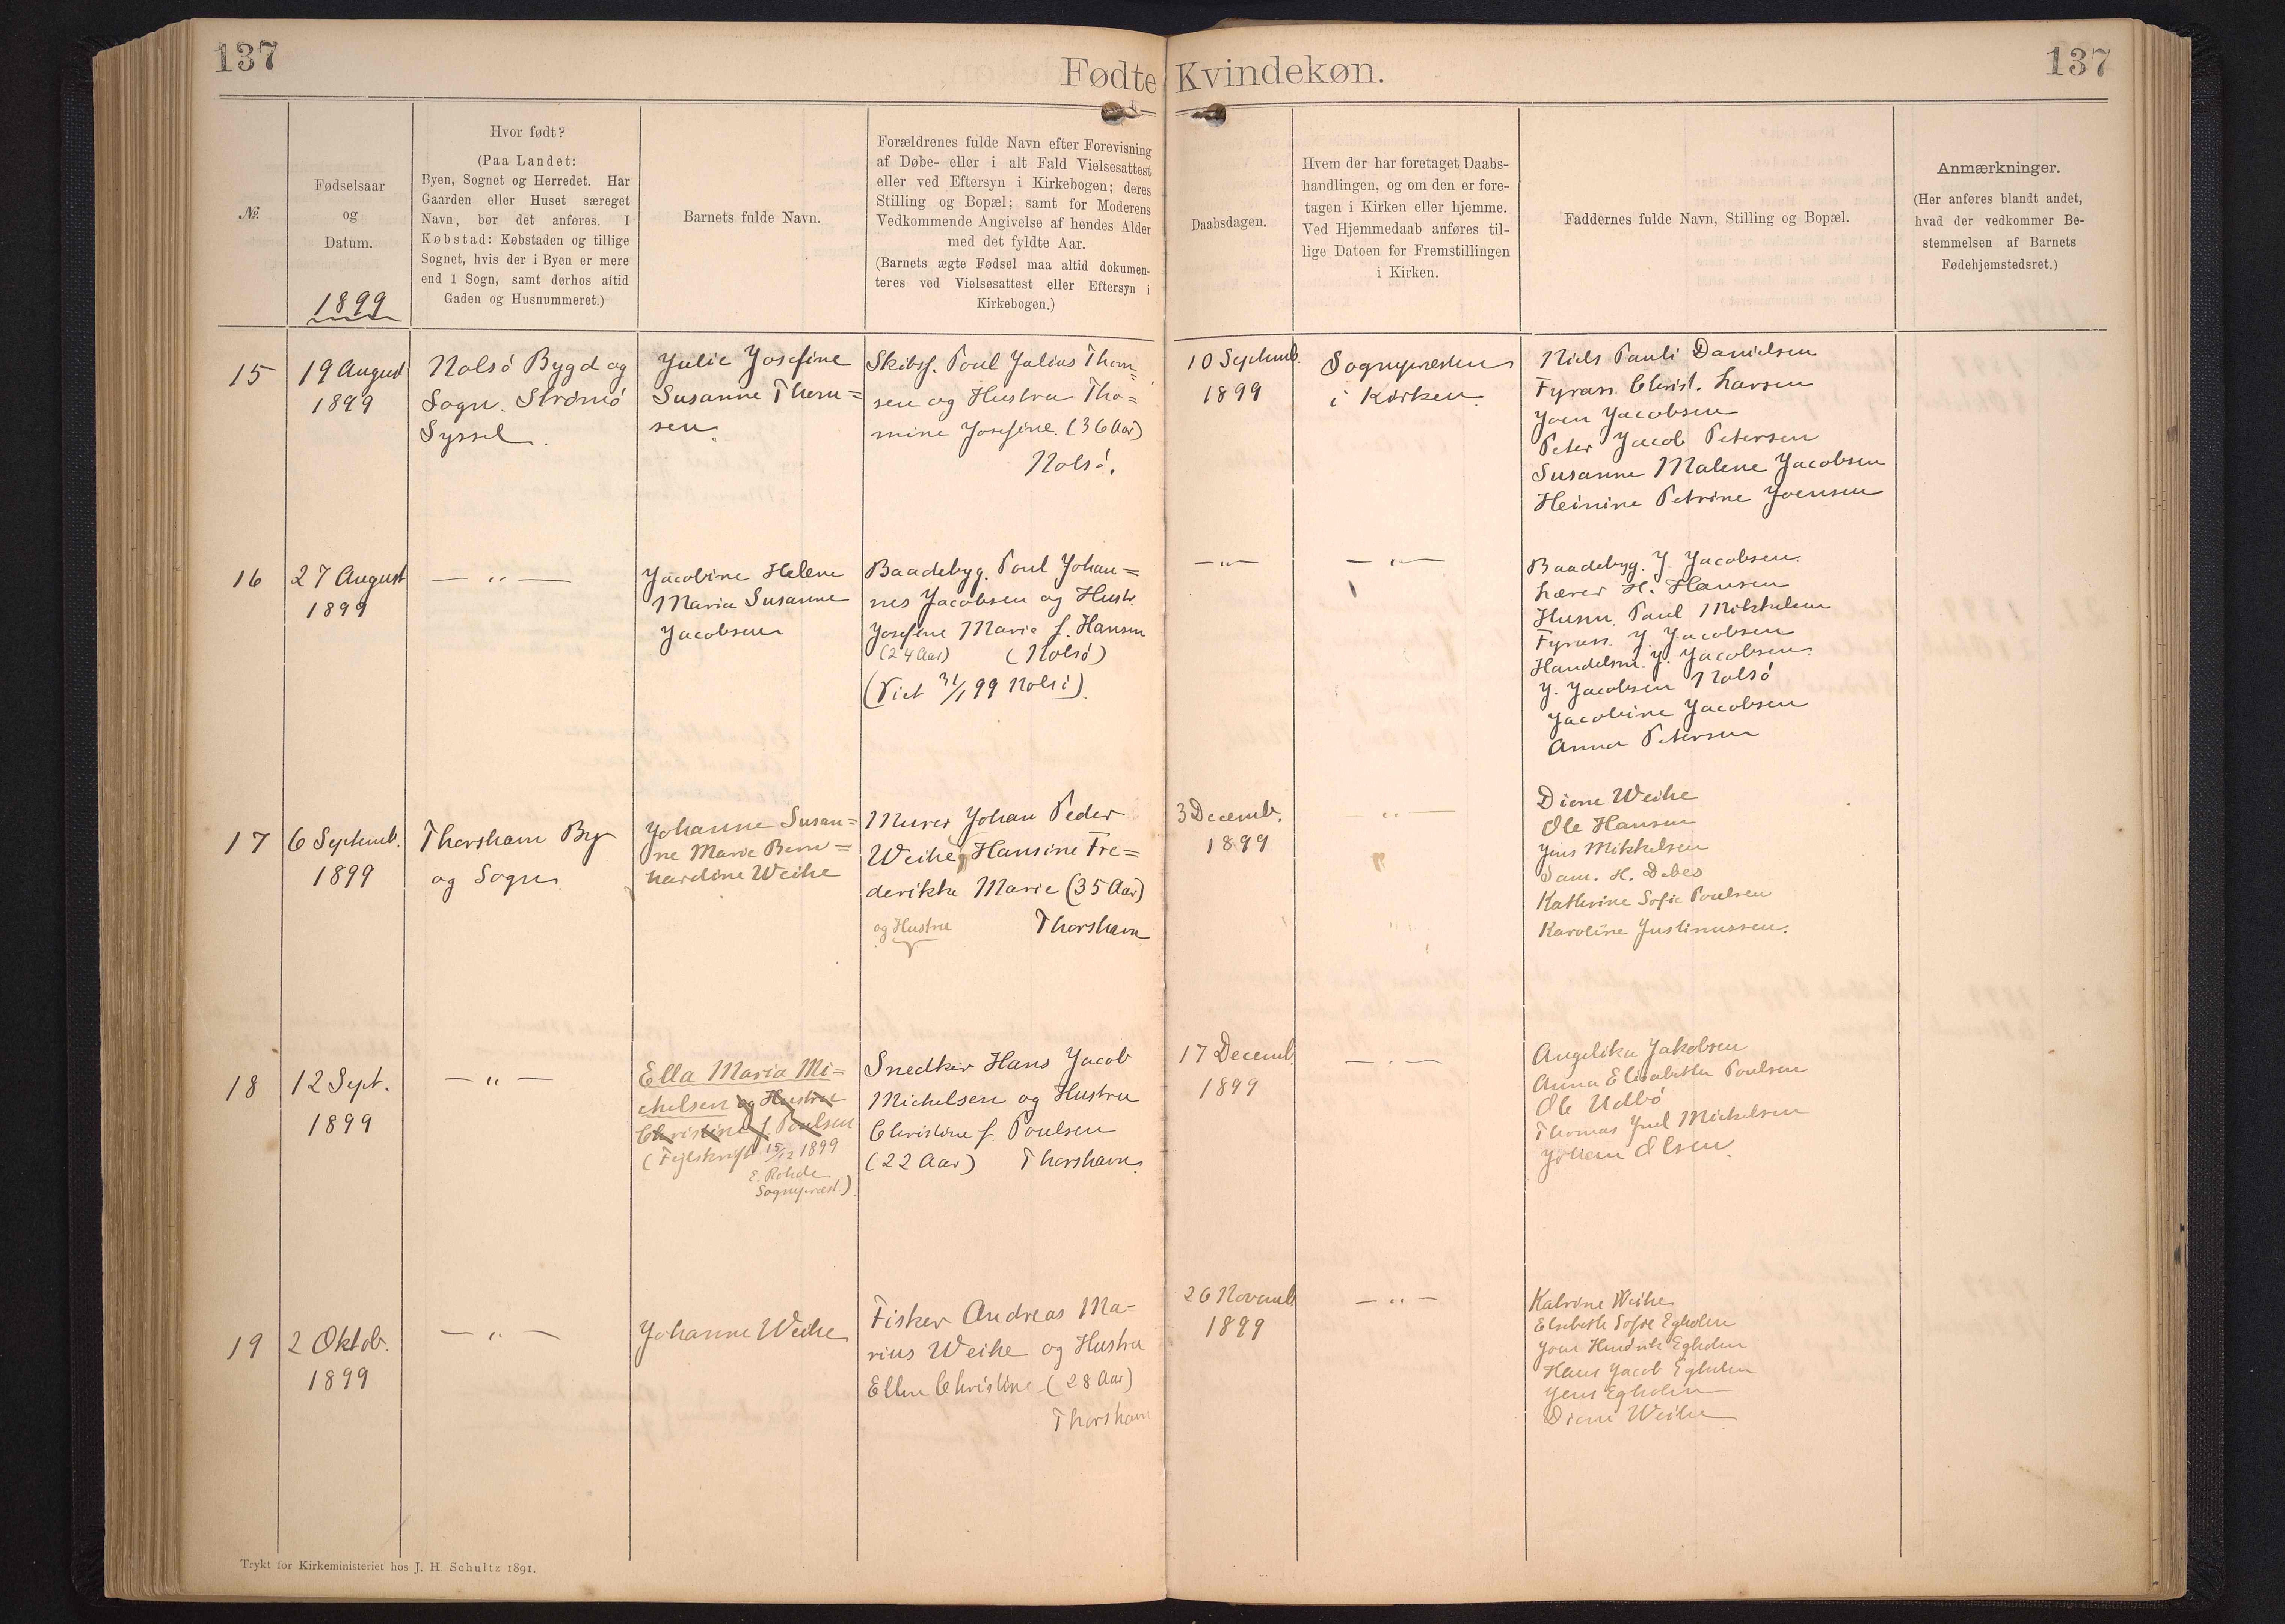 137
Fødte Kvindekøn.
137
№
Fødselsaar
og
Datum.
1899
Hvor født?
(Paa Landet:
Byen, Sognet og Herredet. Har
Gaarden eller Huset særeget
Navn, bør det anføres. I
Købstad: Købstaden og tillige
Sognet, hvis der i Byen er mere
end 1 Sogn, samt derhos altid
Gaden og Husnummeret.)
Barnets fulde Navn.
Forældrenes fulde Navn efter Forevisning
af Døbe- eller i alt Fald Vielsesattest
eller ved Eftersyn i Kirkebogen; deres
Stilling og Bopæl; samt for Moderens
Vedkommende Angivelse af hendes Alder
med det fyldte Aar.
(Barnets ægte Fødsel maa altid dokumen-
teres ved Vielsesattest eller Eftersyn i
Kirkebogen.)
Daabsdagen.
Hvem der har foretaget Daabs-
handlingen, og om den er fore-
tagen i Kirken eller hjemme.
Ved Hjemmedaab anføres til-
lige Datoen for Fremstillingen
i Kirken.
Faddernes fulde Navn, Stilling og Bopæl.
Anmærkninger.
(Her anføres blandt andet,
hvad der vedkommer Be-
stemmelsen af Barnets
Fødehjemstedsret.)
15
19 August
1899
Nolsö Bygd og
Sogn. Strömö
Syssel.
Julie Josefine
Susanne Thom=
sen.
Skibsf. Poul Julius Thom=
sen og Hustru Tho=
mine Josefine. (36 Aar)
Nolsö.
10 Septemb.
1899
Sognepræsten
i Kirken.
Niels Pauli Danielsen
Fyrass. Christ. Larsen
Joen Jacobsen
Peter Jacob Petersen
Susanne Malene Jacobsen
Heinine Petrine Joensen
16
27 August
1899
— „ —
Jacobine Helene
Maria Susanne
Jacobsen
Baadebyg. Poul Johan=
nes Jacobsen og Hustr
Josefine Marie f. Hansen
(24 Aar) (Nolsö)
(Viet 31/1 99 Nolsö).
— „ —
— „ —
Baadebyg. J. Jacobsen.
Lærer H. Hansen
Husm. Paul Mikkelsen
Fyrass. J. Jacobsen
Handelsm. J. Jacobsen.
J. Jacobsen Nolsö
Jacobine Jacobsen
Anna Petersen
17
6 Septemb.
1899
Thorshavn By
og Sogn.
Johanne Susan=
ne Marie Bern=
hardine Weihe
Murer Johan Peder
Weihe, Hansine Fre=
derikke Marie (35 Aar)
og Hustru Thorshavn
3 Decemb.
1899
— „ —
Diene Weihe
Ole Hansen
Jens Mikkelsen
Sam. H. Debes
Kathrine Sofie Poulsen
Karoline Justinussen.
18
12 Sept.
1899
— „ —
Ella Maria Mi=
chelsen og Hustru
Christine f. Poulsen
(Fejlskrift 15/12 1899
E. Rohde
Sognepræst).
Snedker Hans Jacob
Michelsen og Hustru
Christine f. Poulsen
(22 Aar) Thorshavn.
17 Decemb
1899
— „ —
Angelika Jakobsen
Anna Elisabeth Poulsen
Ole Udbö
Thomas Juel Michelsen
Johan Olsen.
19
2 Oktob.
1899
— „ —
Johanne Weihe
Fisker Andreas Ma-
rius Weihe og Hustru
Ellen Christine (28 Aar)
Thorshavn
26 Novemb
1899
— „ —
Katrine Weihe
Elsebeth Sofie Egholm
Joen Hendrik Egholm
Hans Jacob Egholm
Jens Egholm
Diene Weihe
Trykt for Kirkeministeriet hos J. H. Schultz 1891.